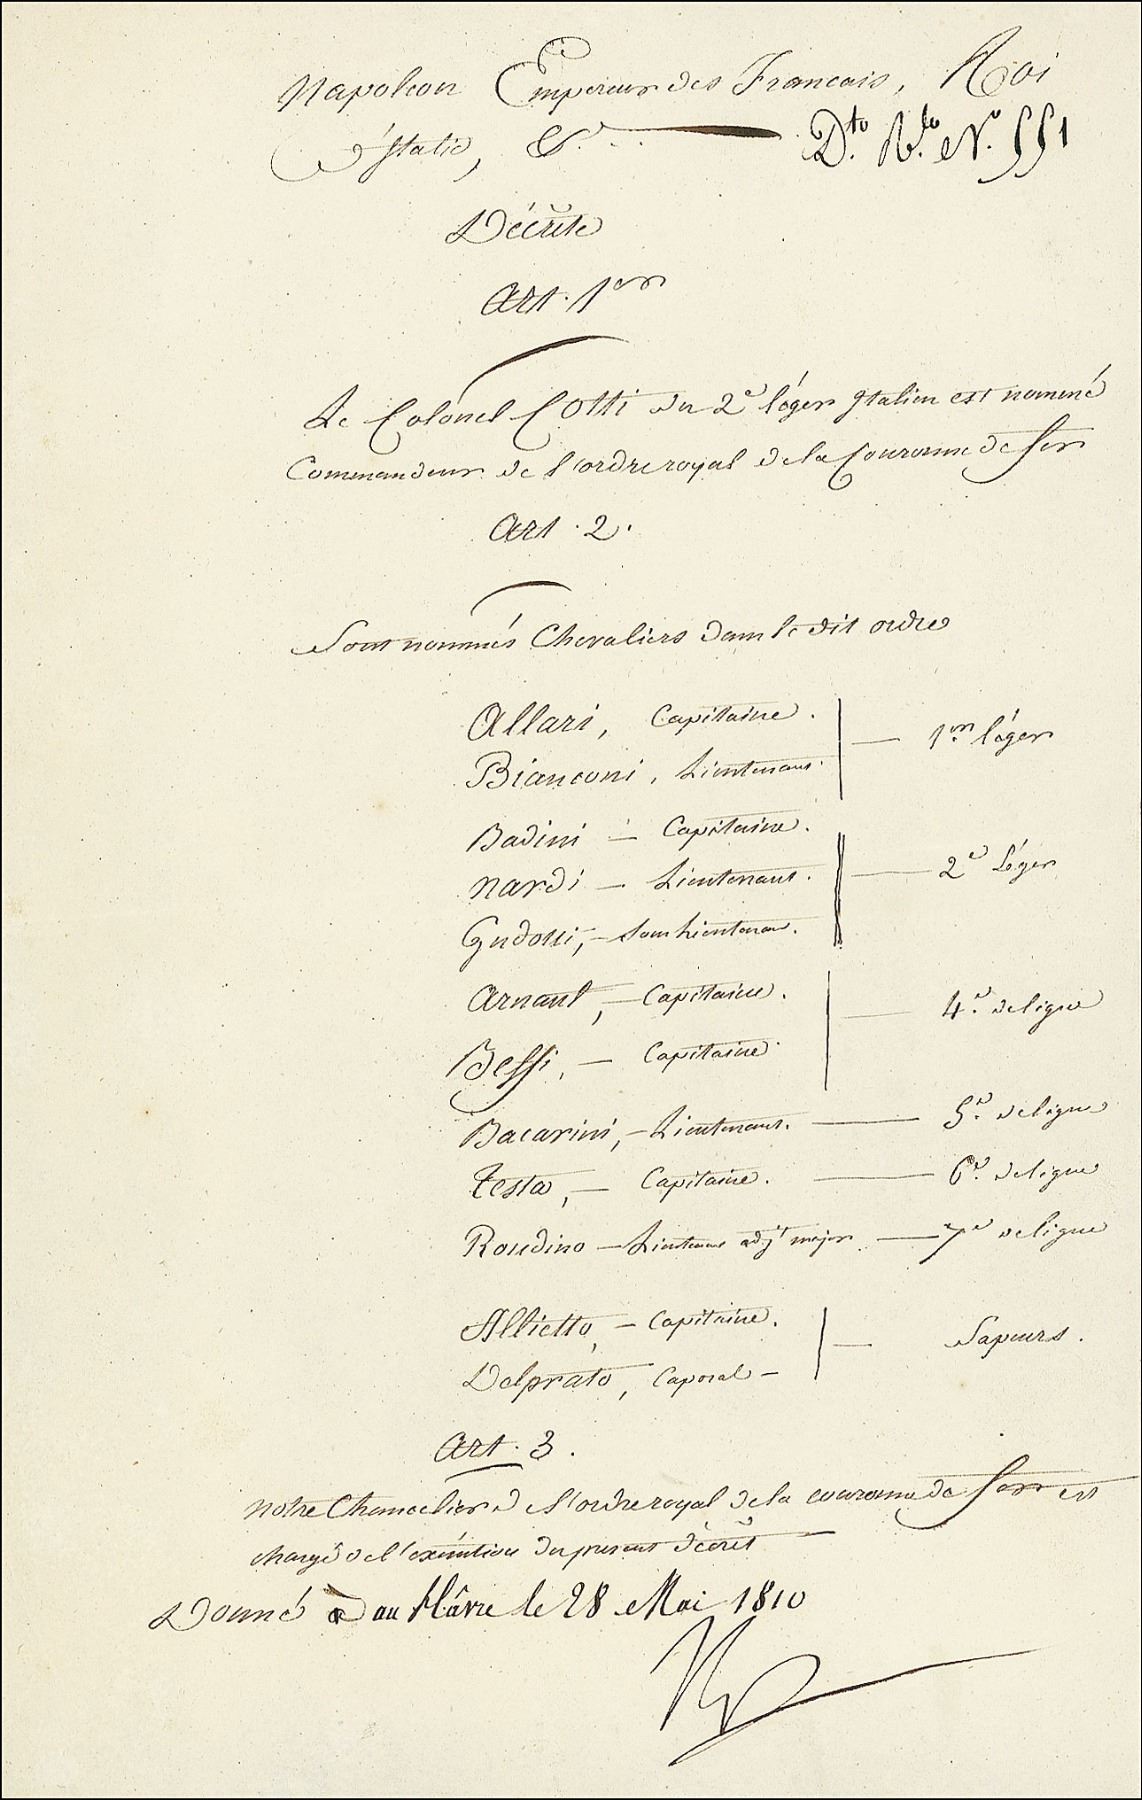 Napoleon Empereur des Francais, Roi
d'Italie, &a... Dto. Rlo. No. 551
Décrete
Art. 1er
Le Colonel Cotti du 2e léger Italien est nommé
Commandeur de l'ordre royal de la Couronne de fer
Art. 2.
Sont nommés Chevaliers dans le dit ordre
Allari, Capitaine.
1er. léger
Bianconi, Lieutenant.
Badini — Capitaine.
Nardi — Lieutenant.
2e léger
Gudotti, — Sous Lieutenant.
Arnaul, — Capitaine.
4e. de ligne
Bessi, — Capitaine
Bacarini, — Lieutenant. — 5e. de ligne
Testa, — Capitaine. — 6e. de ligne
Rondino — Lieutenant adjt major — 7e de ligne
Allietto, — Capitaine.
Sapeurs.
Delprato, Caporal —
Art. 3.
Notre Chancelier de l'ordre royal de la couronne de fer est
chargé de l'exécution du present décret
Donné au Hâvre le 28 Mai 1810
Np